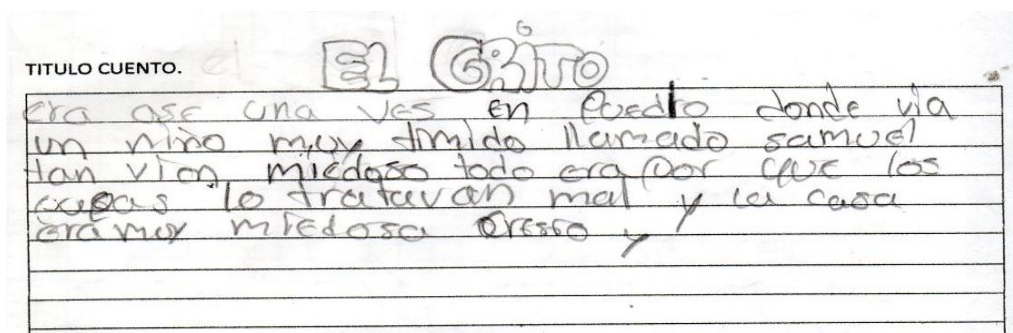 TITULO CUENTO. EL GRITO
era ase una ves en Puedlo donde via
un niño muy timido llamado samuel
tan vien miedoso todo era por que los
lo tratavan mal y la casa
era muy miedosa y